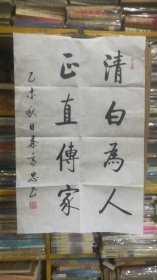 清白為人
正直傳家
乙未秋日